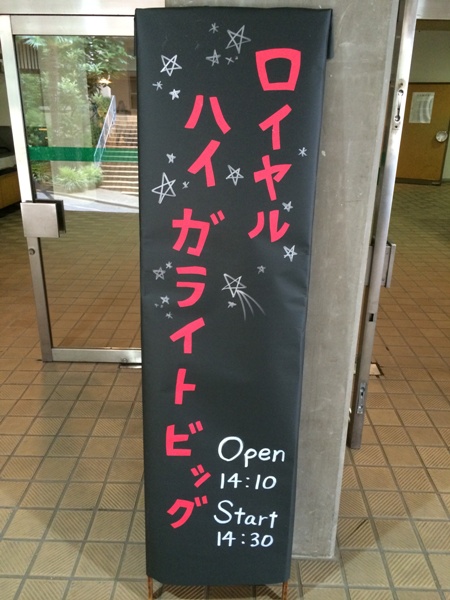 ロイヤル
ハイ ガライトビッグ
Open
14:10
Start
14:30